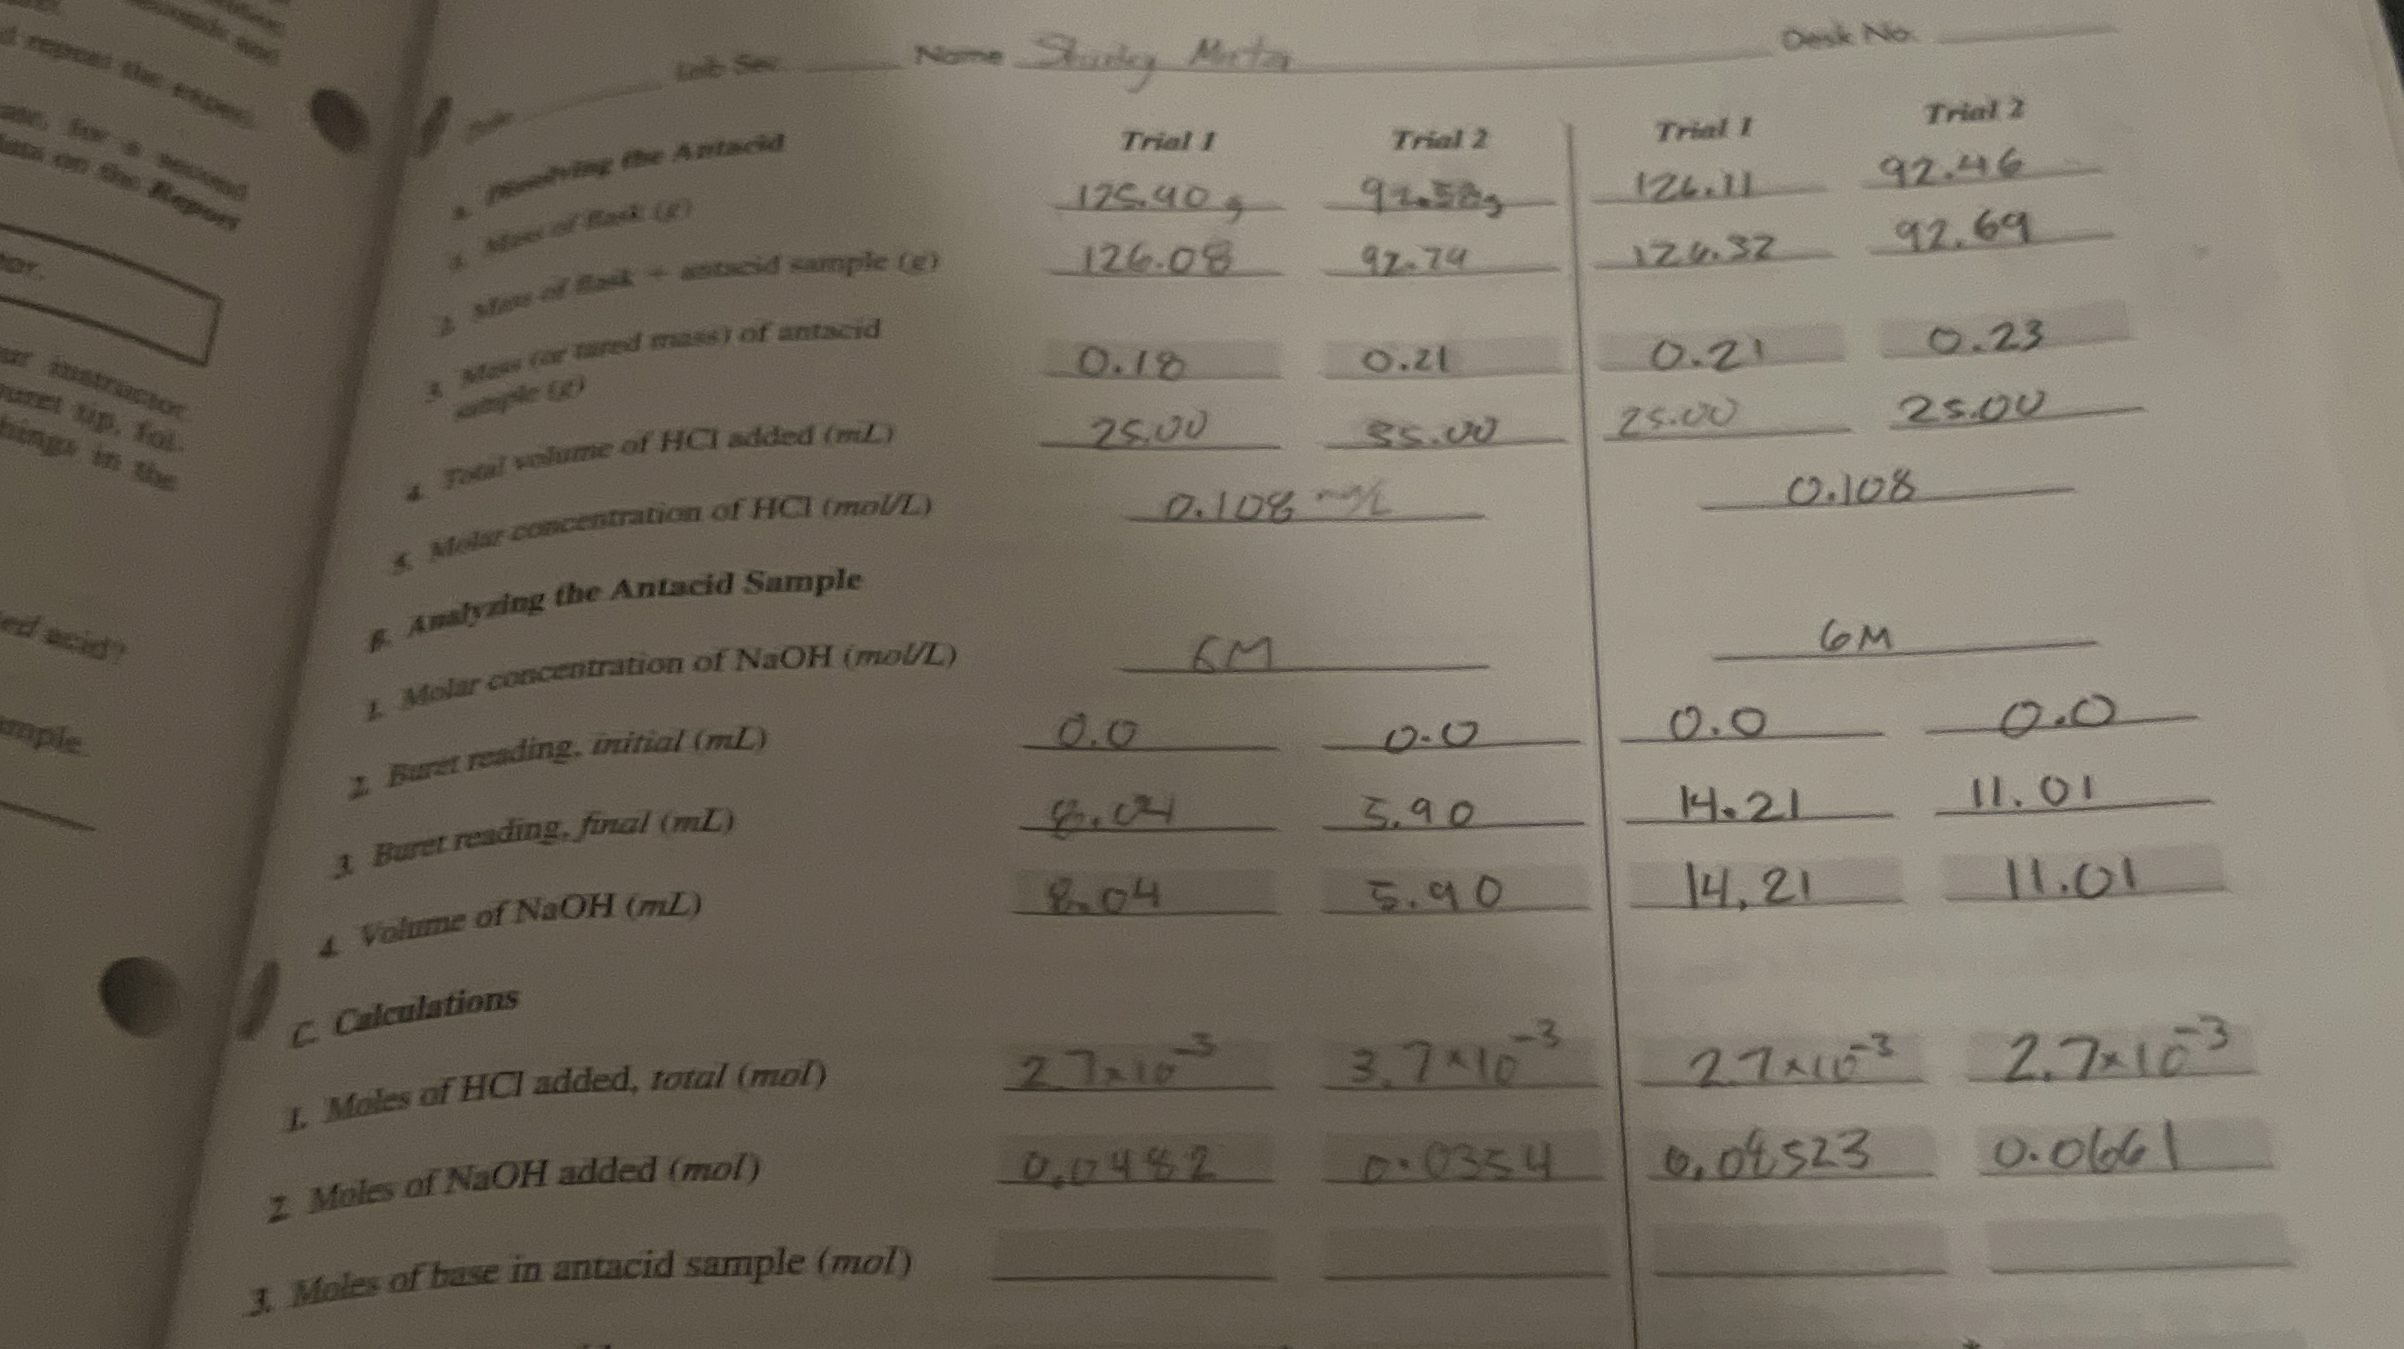 repeat the
for a second
data on the Report
instructor
tip, fol-
things in the
acid?
Lab Sec. Name Desk No.
Trial 1 Trial 2 Trial 1 Trial 2
Dissolving the Antacid
Mass of flask (g) 125.90 g 92.58g 126.11 92.46
2. Mass of flask + antacid sample (g) 126.08 92.79 126.32 92.69
3. Mass (or tared mass) of antacid
sample (g) 0.18 0.21 0.21 0.23
4. Total volume of HCl added (mL) 25.00 35.00 25.00 25.00
5. Molar concentration of HCl (mol/L) 0.108 mol/L 0.108
B. Analyzing the Antacid Sample
1. Molar concentration of NaOH (mol/L) 6M 6M
2. Buret reading, initial (mL) 0.0 0.0 0.0 0.0
3. Buret reading, final (mL) 8.04 5.90 14.21 11.01
4. Volume of NaOH (mL) 8.04 5.90 14.21 11.01
C. Calculations
1. Moles of HCl added, total (mol) 2.7x10⁻³ 3.7x10⁻³ 2.7x10⁻³ 2.7x10⁻³
2. Moles of NaOH added (mol) 0.0482 0.0354 0.08523 0.0661
3. Moles of base in antacid sample (mol)